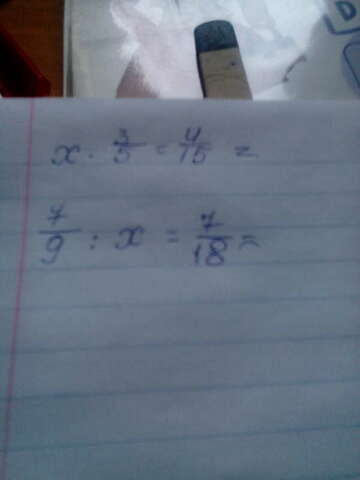 x · 3/5 = 4/15 =
7/9 : x = 7/18 =